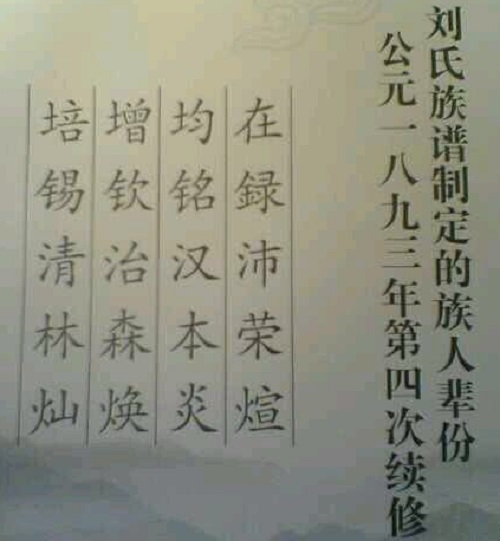 刘氏族谱制定的族人辈份
公元一八九三年第四次续修
在録沛荣煊
均铭汉本炎
增钦治森焕
培锡清林灿